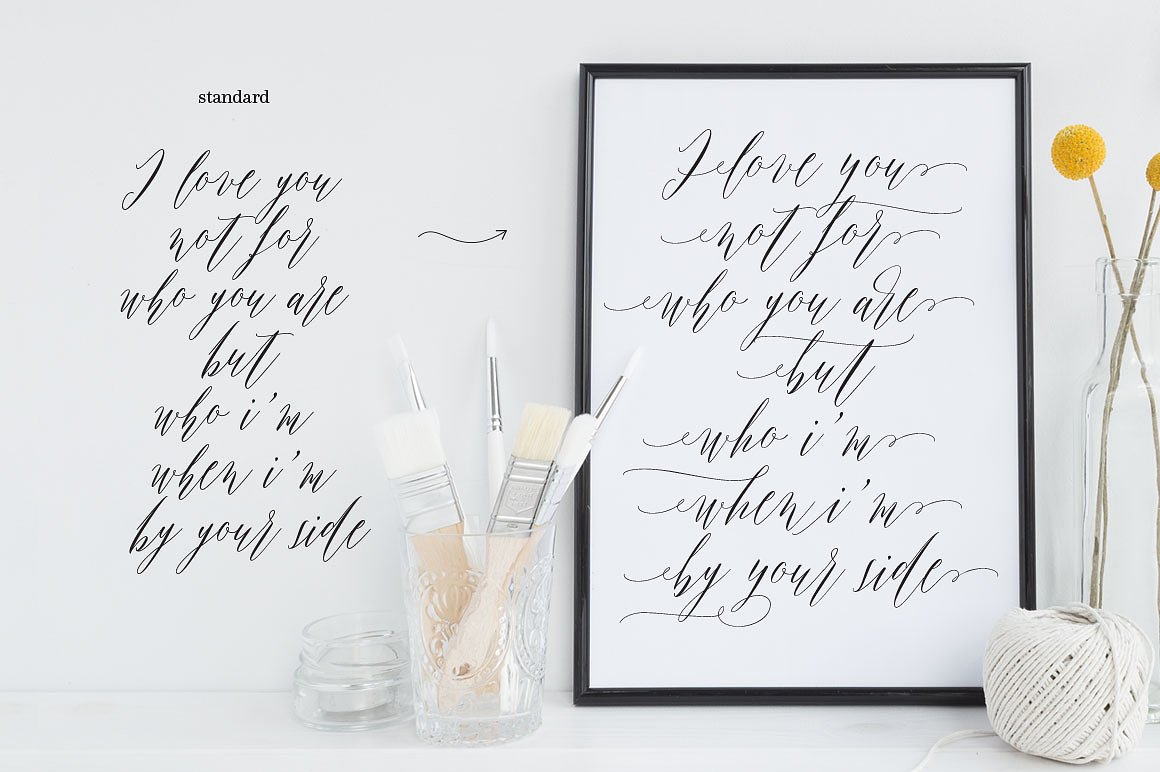 standard
I love you
not for
who you are
but
who i'm
when i'm
by your side
I love you
not for
who you are
but
who i'm
when i'm
by your side